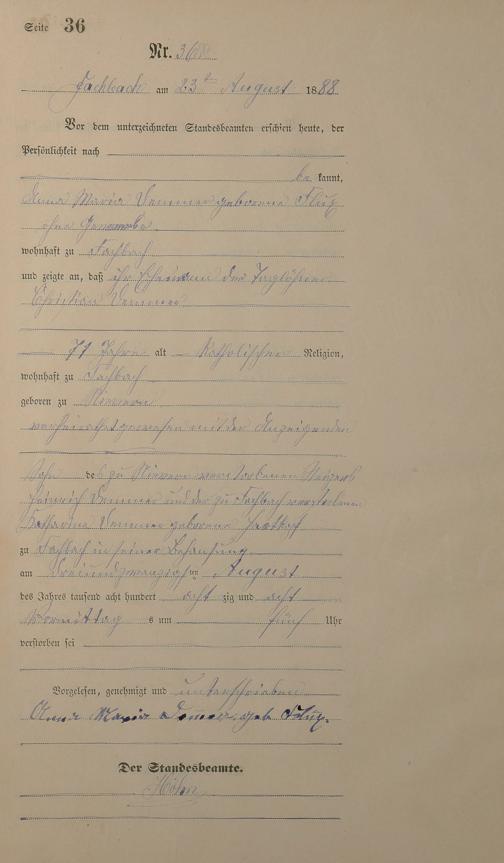 Seite 36
Nr. 36
Fachbach am 23ten August 1888
Vor dem unterzeichneten Standesbeamten erschien heute, der
Persönlichkeit nach
be kannt,
Anna Maria geborene
ohne Gewerbe
wohnhaft zu Fachbach
und zeigte an, daß ihr Ehemann der Taglöhner
Christian
71 Jahre alt Katholischer Religion,
wohnhaft zu Fachbach
geboren zu Nievern
verheirathet gewesen mit der Anzeigenden
Sohn des zu Nievern verstorbenen
Heinrich und der zu Fachbach verstorbenen
Katharina geborene
zu Fachbach in seiner Behausung
am dreiundzwanzigsten August
des Jahres tausend acht hundert acht zig und acht
Vormittags um fünf Uhr
verstorben sei
Vorgelesen, genehmigt und unterschrieben
Anna Maria geb.
Der Standesbeamte.
Höhn